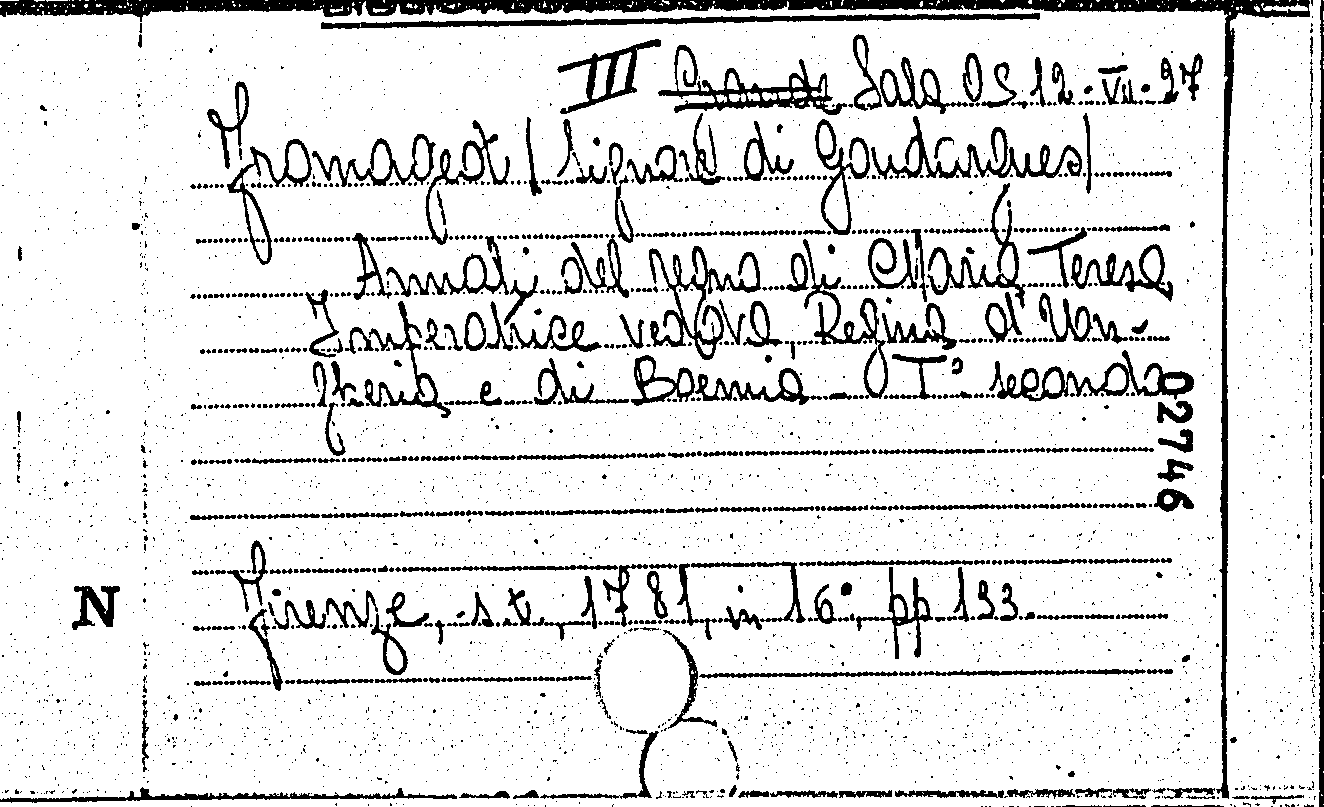 III Grande Sala OS. 12. VII. 27
Fromageot (Signore di Goudarques)
Annali del regno di Maria Teresa
Imperatrice vedova, Regina d'Un-
gheria e di Boemia - T° secondo
02746
N
Firenze, s.t., 1781, in 16°, pp 133.